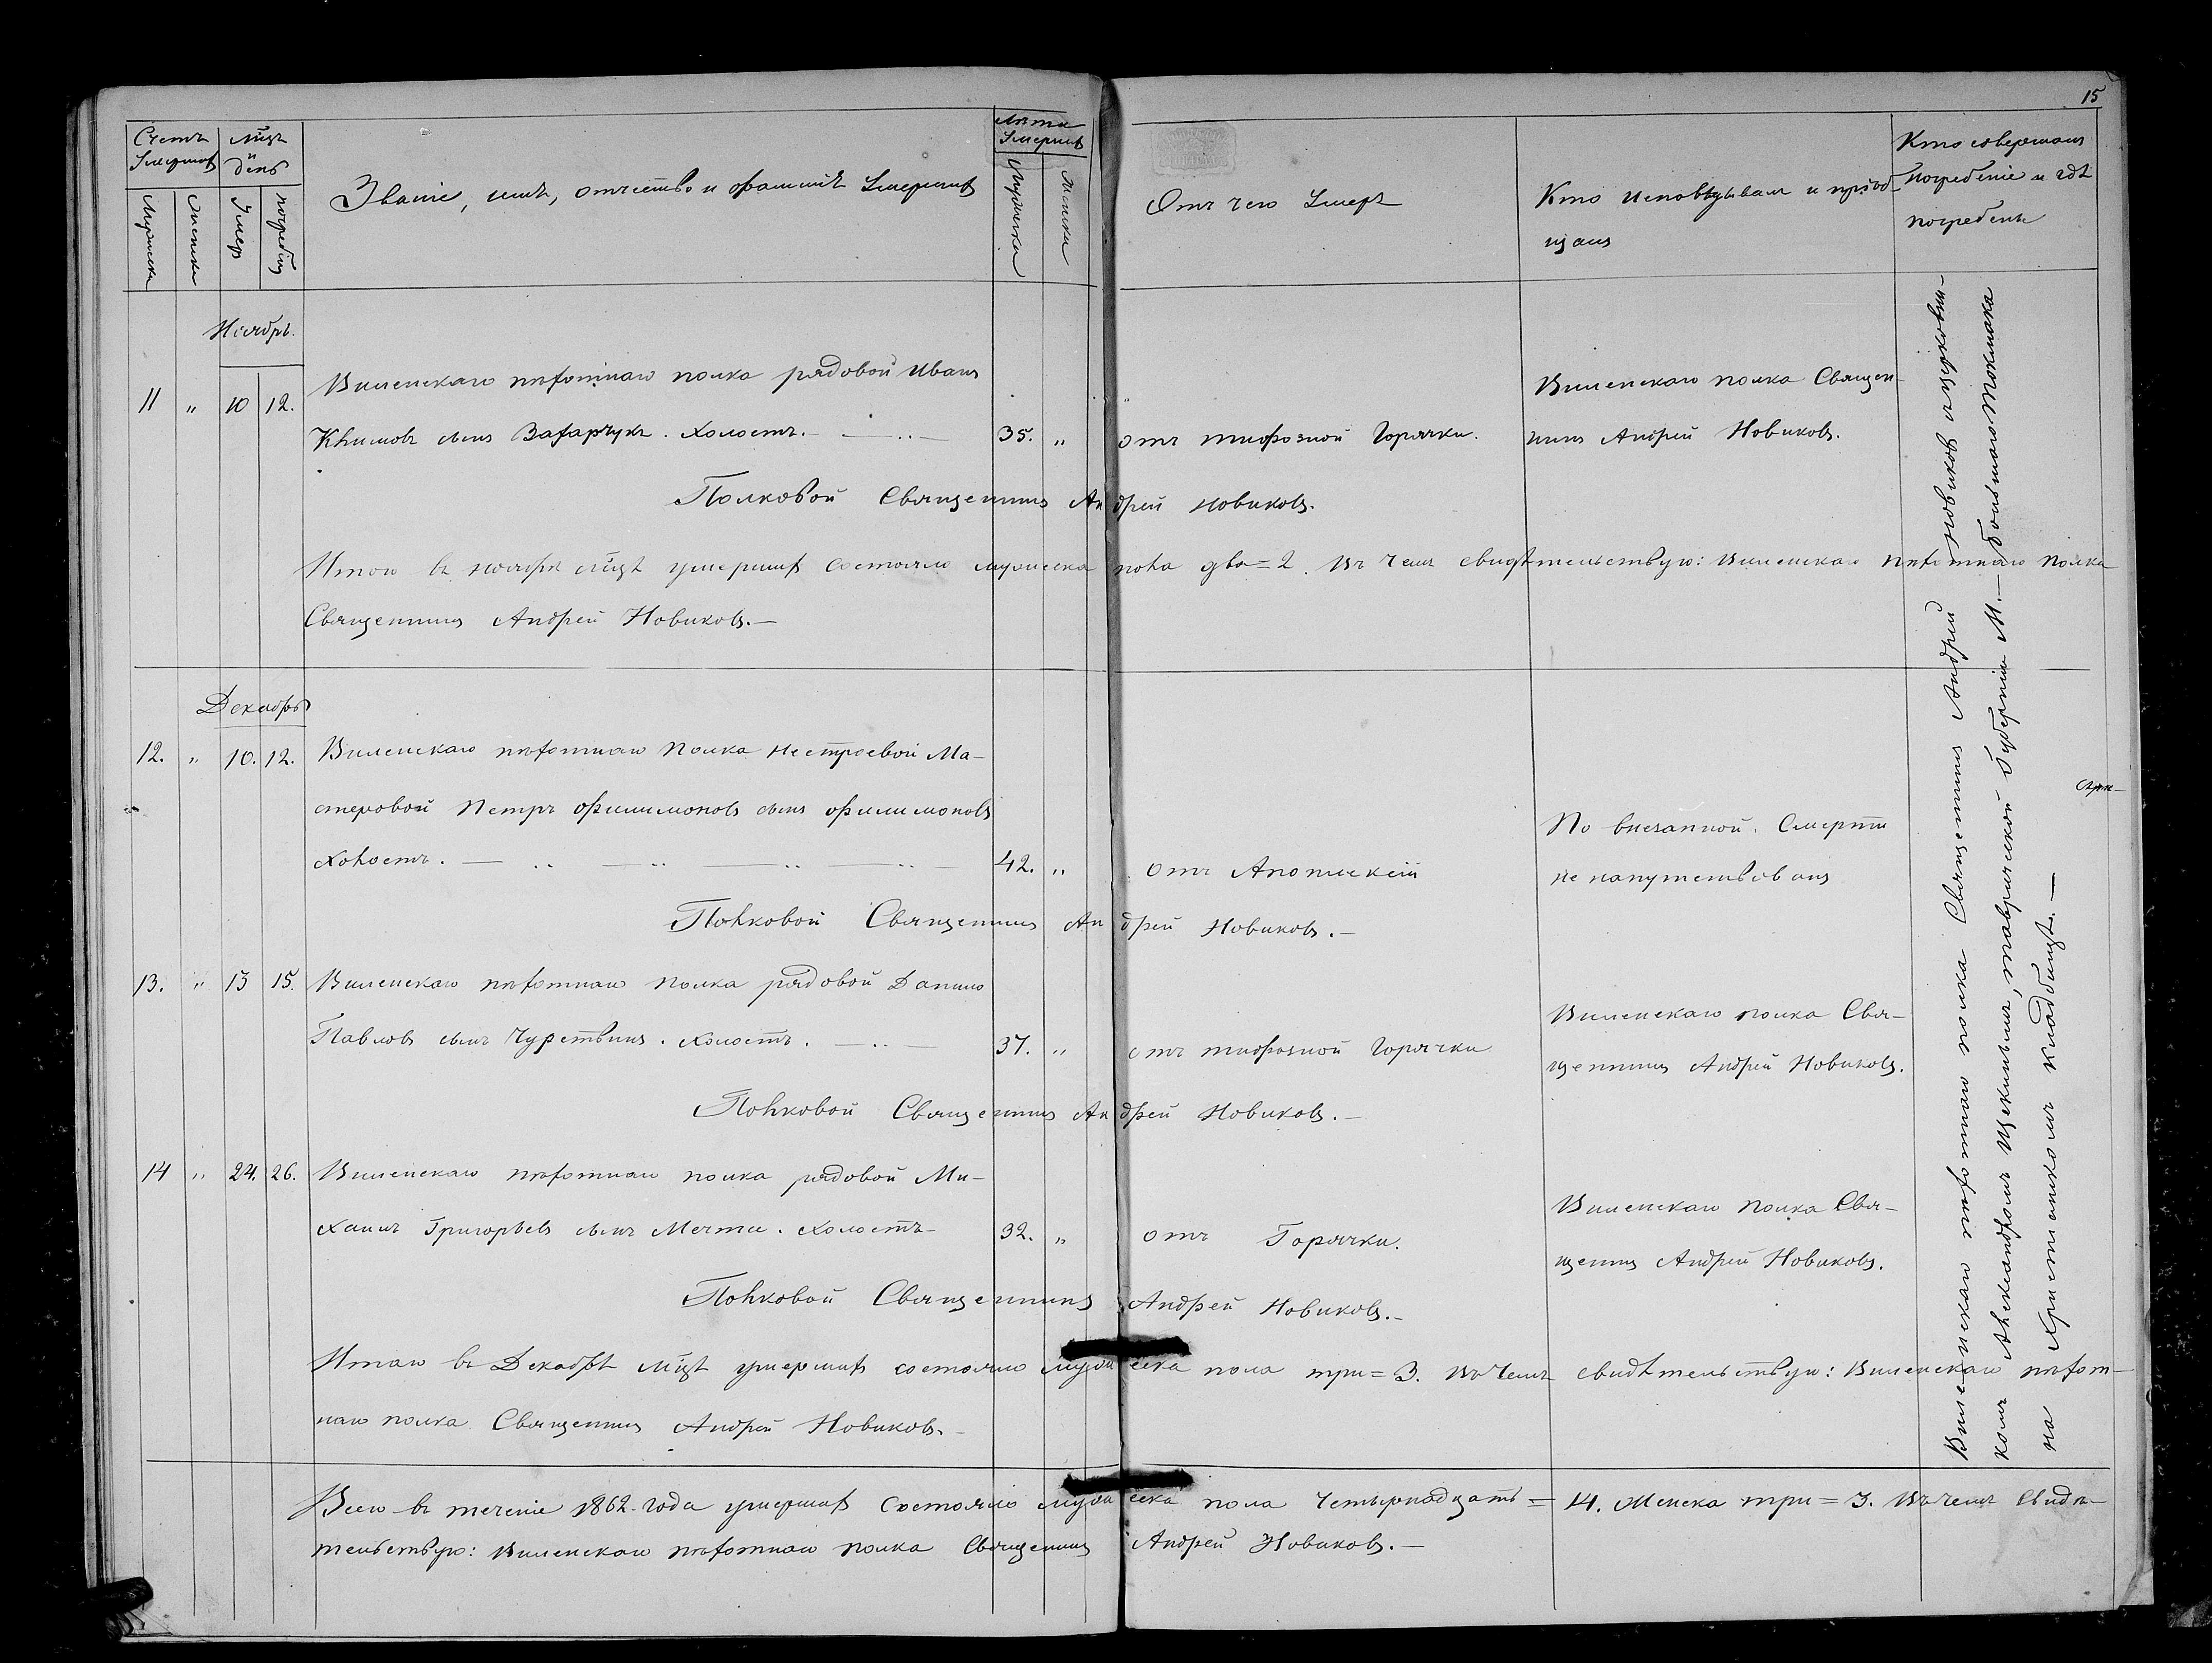 15
Счетъ Умершихъ
Мужеска
Женска
мѣцъ и день
Умер.
погребен.
Званіе, имя, отчество и фамилія Умершихъ
Лѣта Умершихъ
Мужеска
Женска
Отъ чего Умеръ
Кто исповѣдывалъ и пріоб-
щалъ
Кто совершалъ
погребеніе и гдѣ
погребены
Ноябрь.
11 " 10 12.
Виленскаго пѣхотнаго полка рядовой Иванъ
Климовъ сынъ Захарчукъ. холостъ. — 35. " отъ тифозной Горячки.
Виленскаго полка Священ-
никъ Андрей Новиковъ.
Полковой Священникъ Андрей Новиковъ.
Итого въ ноябрѣ мѣцѣ умершихъ состояло мужеска пола два = 2. Въ чемъ свидѣтельствую: Виленскаго пѣхотнаго полка
Священникъ Андрей Новиковъ. —
Декабрь
12. " 10. 12. Виленскаго пѣхотнаго полка нестроевой Ма-
стеровой Петръ Филимоновъ сынъ Филимоновъ
холостъ. — 42. " отъ Апоплексіи
По внезапной Смерти
не напутствованъ
Полковой Священникъ Андрей Новиковъ. —
13. " 13 15. Виленскаго пѣхотнаго полка рядовой Данило
Павловъ сынъ Чурствинъ. холостъ. — 37. " отъ тифозной Горячки
Виленскаго полка Свя-
щенникъ Андрей Новиковъ.
Полковой Священникъ Андрей Новиковъ. —
14 " 24. 26. Виленскаго пѣхотнаго полка рядовой Ми-
хаилъ Григорьевъ сынъ Мечти. холостъ — 32. " отъ Горячки.
Виленскаго полка Свя-
щенникъ Андрей Новиковъ.
Полковой Священникъ Андрей Новиковъ. —
Итого въ Декабрѣ мѣцѣ умершихъ состояло мужеска пола три = 3. Въ чемъ свидѣтельствую: Виленскаго пѣхот-
наго полка Священникъ Андрей Новиковъ. —
Всего въ теченіе 1862 года умершихъ состояло мужеска пола четырнадцать = 14. Женска три = 3. Въ чемъ свидѣ-
тельствую: Виленскаго пѣхотнаго полка Священникъ Андрей Новиковъ. —
Виленскаго пѣхотнаго полка Священникъ Андрей Новиковъ
комъ Александромъ таврической Губерніи М. Большаго Токмака
на Христіанскомъ кладбищѣ. —